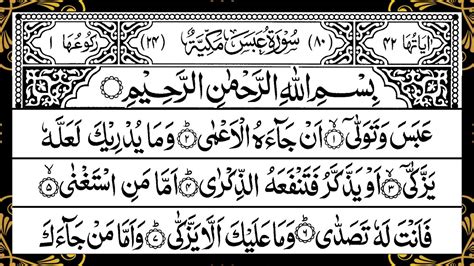 اٰيَاتُهَا ٤٢ (٨٠) سُوْرَةُ عَبَسَ مَكِّيَّةٌ (٢٤) رُكُوْعُهَا ١
بِسْمِ اللّٰهِ الرَّحْمٰنِ الرَّحِيْمِ
عَبَسَ وَتَوَلّٰىۤ ۙ﴿١﴾ اَنْ جَآءَهُ الْاَعْمٰى ؕ﴿٢﴾ وَمَا يُدْرِيْكَ لَعَلَّهٗ
يَزَّكّٰىۤ ۙ﴿٣﴾ اَوْ يَذَّكَّرُ فَتَنْفَعَهُ الذِّكْرٰى ؕ﴿٤﴾ اَمَّا مَنِ اسْتَغْنٰى ۙ﴿٥﴾
فَاَنْتَ لَهٗ تَصَدّٰى ؕ﴿٦﴾ وَمَا عَلَيْكَ اَلَّا يَزَّكّٰى ؕ﴿٧﴾ وَاَمَّا مَنْ جَآءَكَ